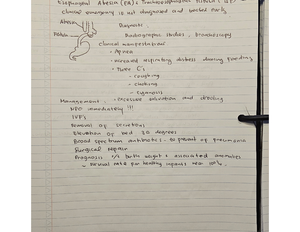 Esophageal Atresia (EA) + Tracheoesophageal Fistula (TEF)
Clinical emergency if not diagnosed and treated early
Atresia
Diagnosis
Fistula
Radiographic studies, bronchoscopy
Clinical manifestations
- Apnea
- increased respiratory distress during feeding
- Three C's
- coughing
- choking
- cyanosis
- excessive salivation and drooling
Management
NPO immediately!!!
IVFs
Removal of secretions
Elevation of bed 30 degrees
Broad spectrum antibiotics - to prevent pneumonia
Surgical repair
Prognosis birth weight + associated anomalies
- Survival rate for healthy infants near 100%